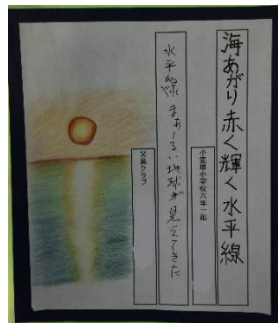 海あがり 赤く輝く 水平線
小笠原小学校六年一組
水平線 まあーるい地球が 見えてきた
クラブ